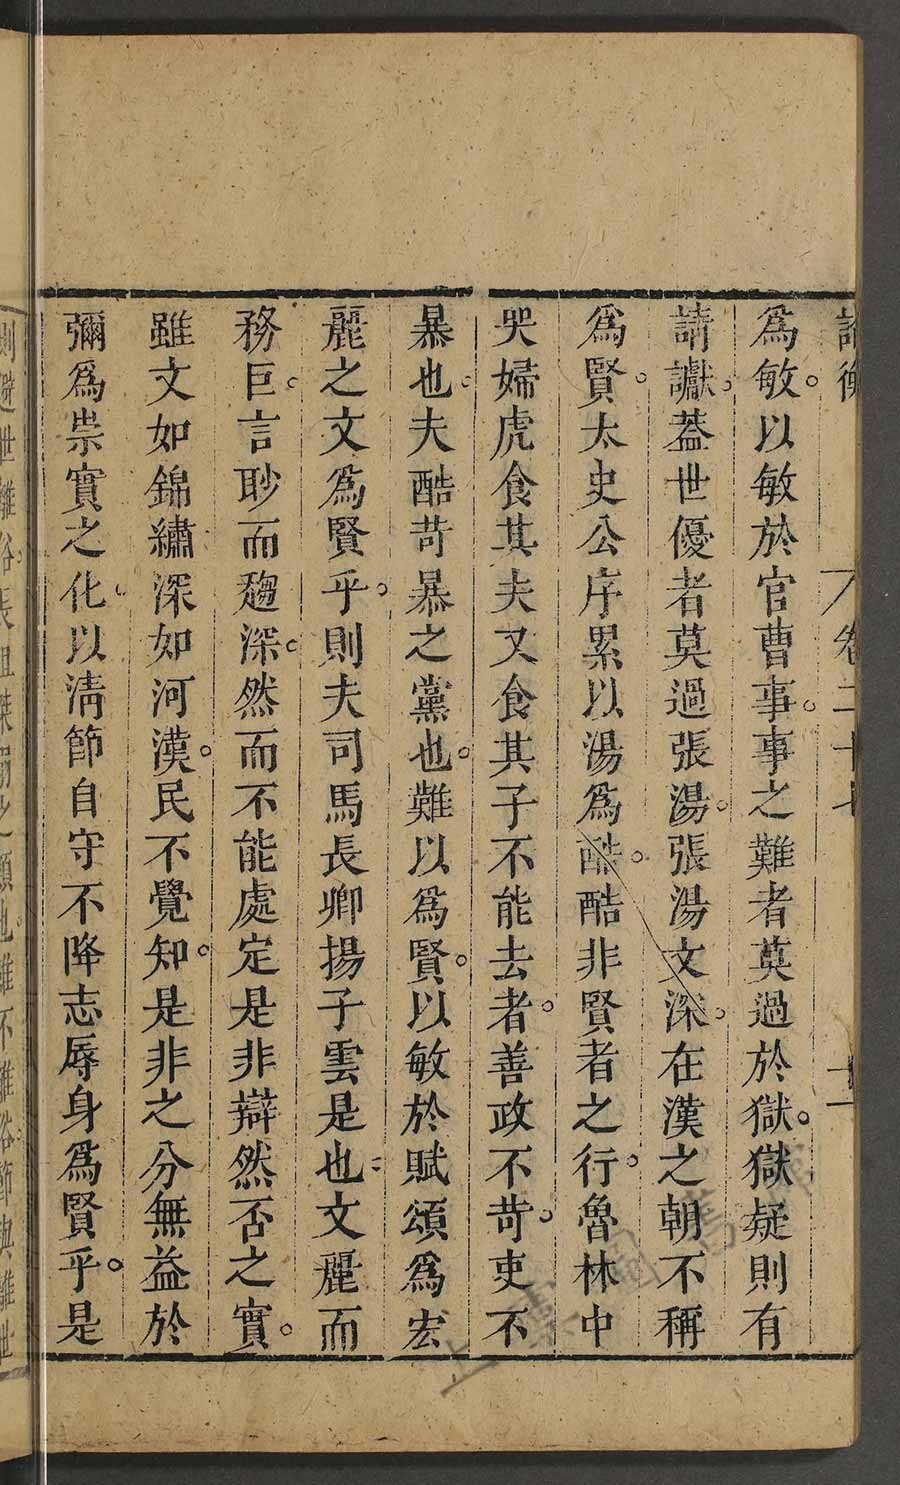 論衡 卷二十七 十一
爲敏。以敏於官曹事。事之難者莫過於獄。獄疑則有
請讞。葢世優者莫過張湯。張湯文深。在漢之朝不稱
爲賢。太史公序累以湯爲酷。酷非賢者之行。魯林中
哭婦虎食其夫又食其子不能去者。善政不苛。吏不
暴也。夫酷苛暴之黨也。難以爲賢。以敏於賦頌爲宏
麗之文爲賢乎。則夫司馬長卿揚子雲是也。文麗而
務巨。言眇而趨深。然而不能處定是非辯然否之實。
雖文如錦繡深如河漢。民不覺知。是非之分無益於
彌爲崇實之化。以淸節自守不降志辱身爲賢乎。是
則避世離俗長沮桀溺之類也。雖不離俗節與離世